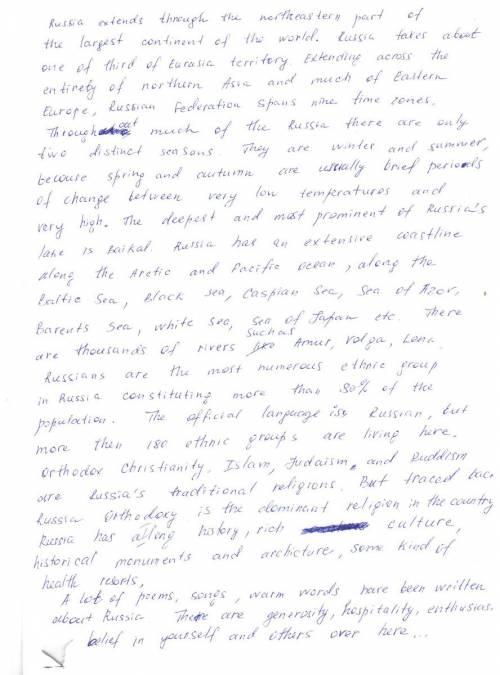 Russia extends through the northeastern part of
the largest continent of the world. Russia takes about
one of third of Eurasia territory. Extending across the
entirety of northern Asia and much of Eastern
Europe, Russian Federation spans nine time zones.
Throughout much of the Russia there are only
two distinct seasons. They are winter and summer,
because spring and autumn are usually brief periods
of change between very low temperatures and
very high. The deepest and most prominent of Russia's
lake is Baikal. Russia has an extensive coastline
along the Arctic and Pacific Ocean, along the
Baltic Sea, Black Sea, Caspian Sea, Sea of Azov,
Barents Sea, White Sea, Sea of Japan etc. There
are thousands of rivers such as Amur, Volga, Lena.
Russians are the most numerous ethnic group
in Russia constituting more than 80% of the
population. The official language is Russian, but
more then 180 ethnic groups are living here.
Orthodox Christianity, Islam, Judaism, and Buddism
are Russia's traditional religions. But traced bac
Russia Orthodoxy is the dominant religion in the country
Russia has a long history, rich culture,
historical monuments and archicture, some kind of
health resorts.
A lot of poems, songs, warm words have been written
about Russia. There are generosity, hospitality, enthusias
belief in yourself and others over here...